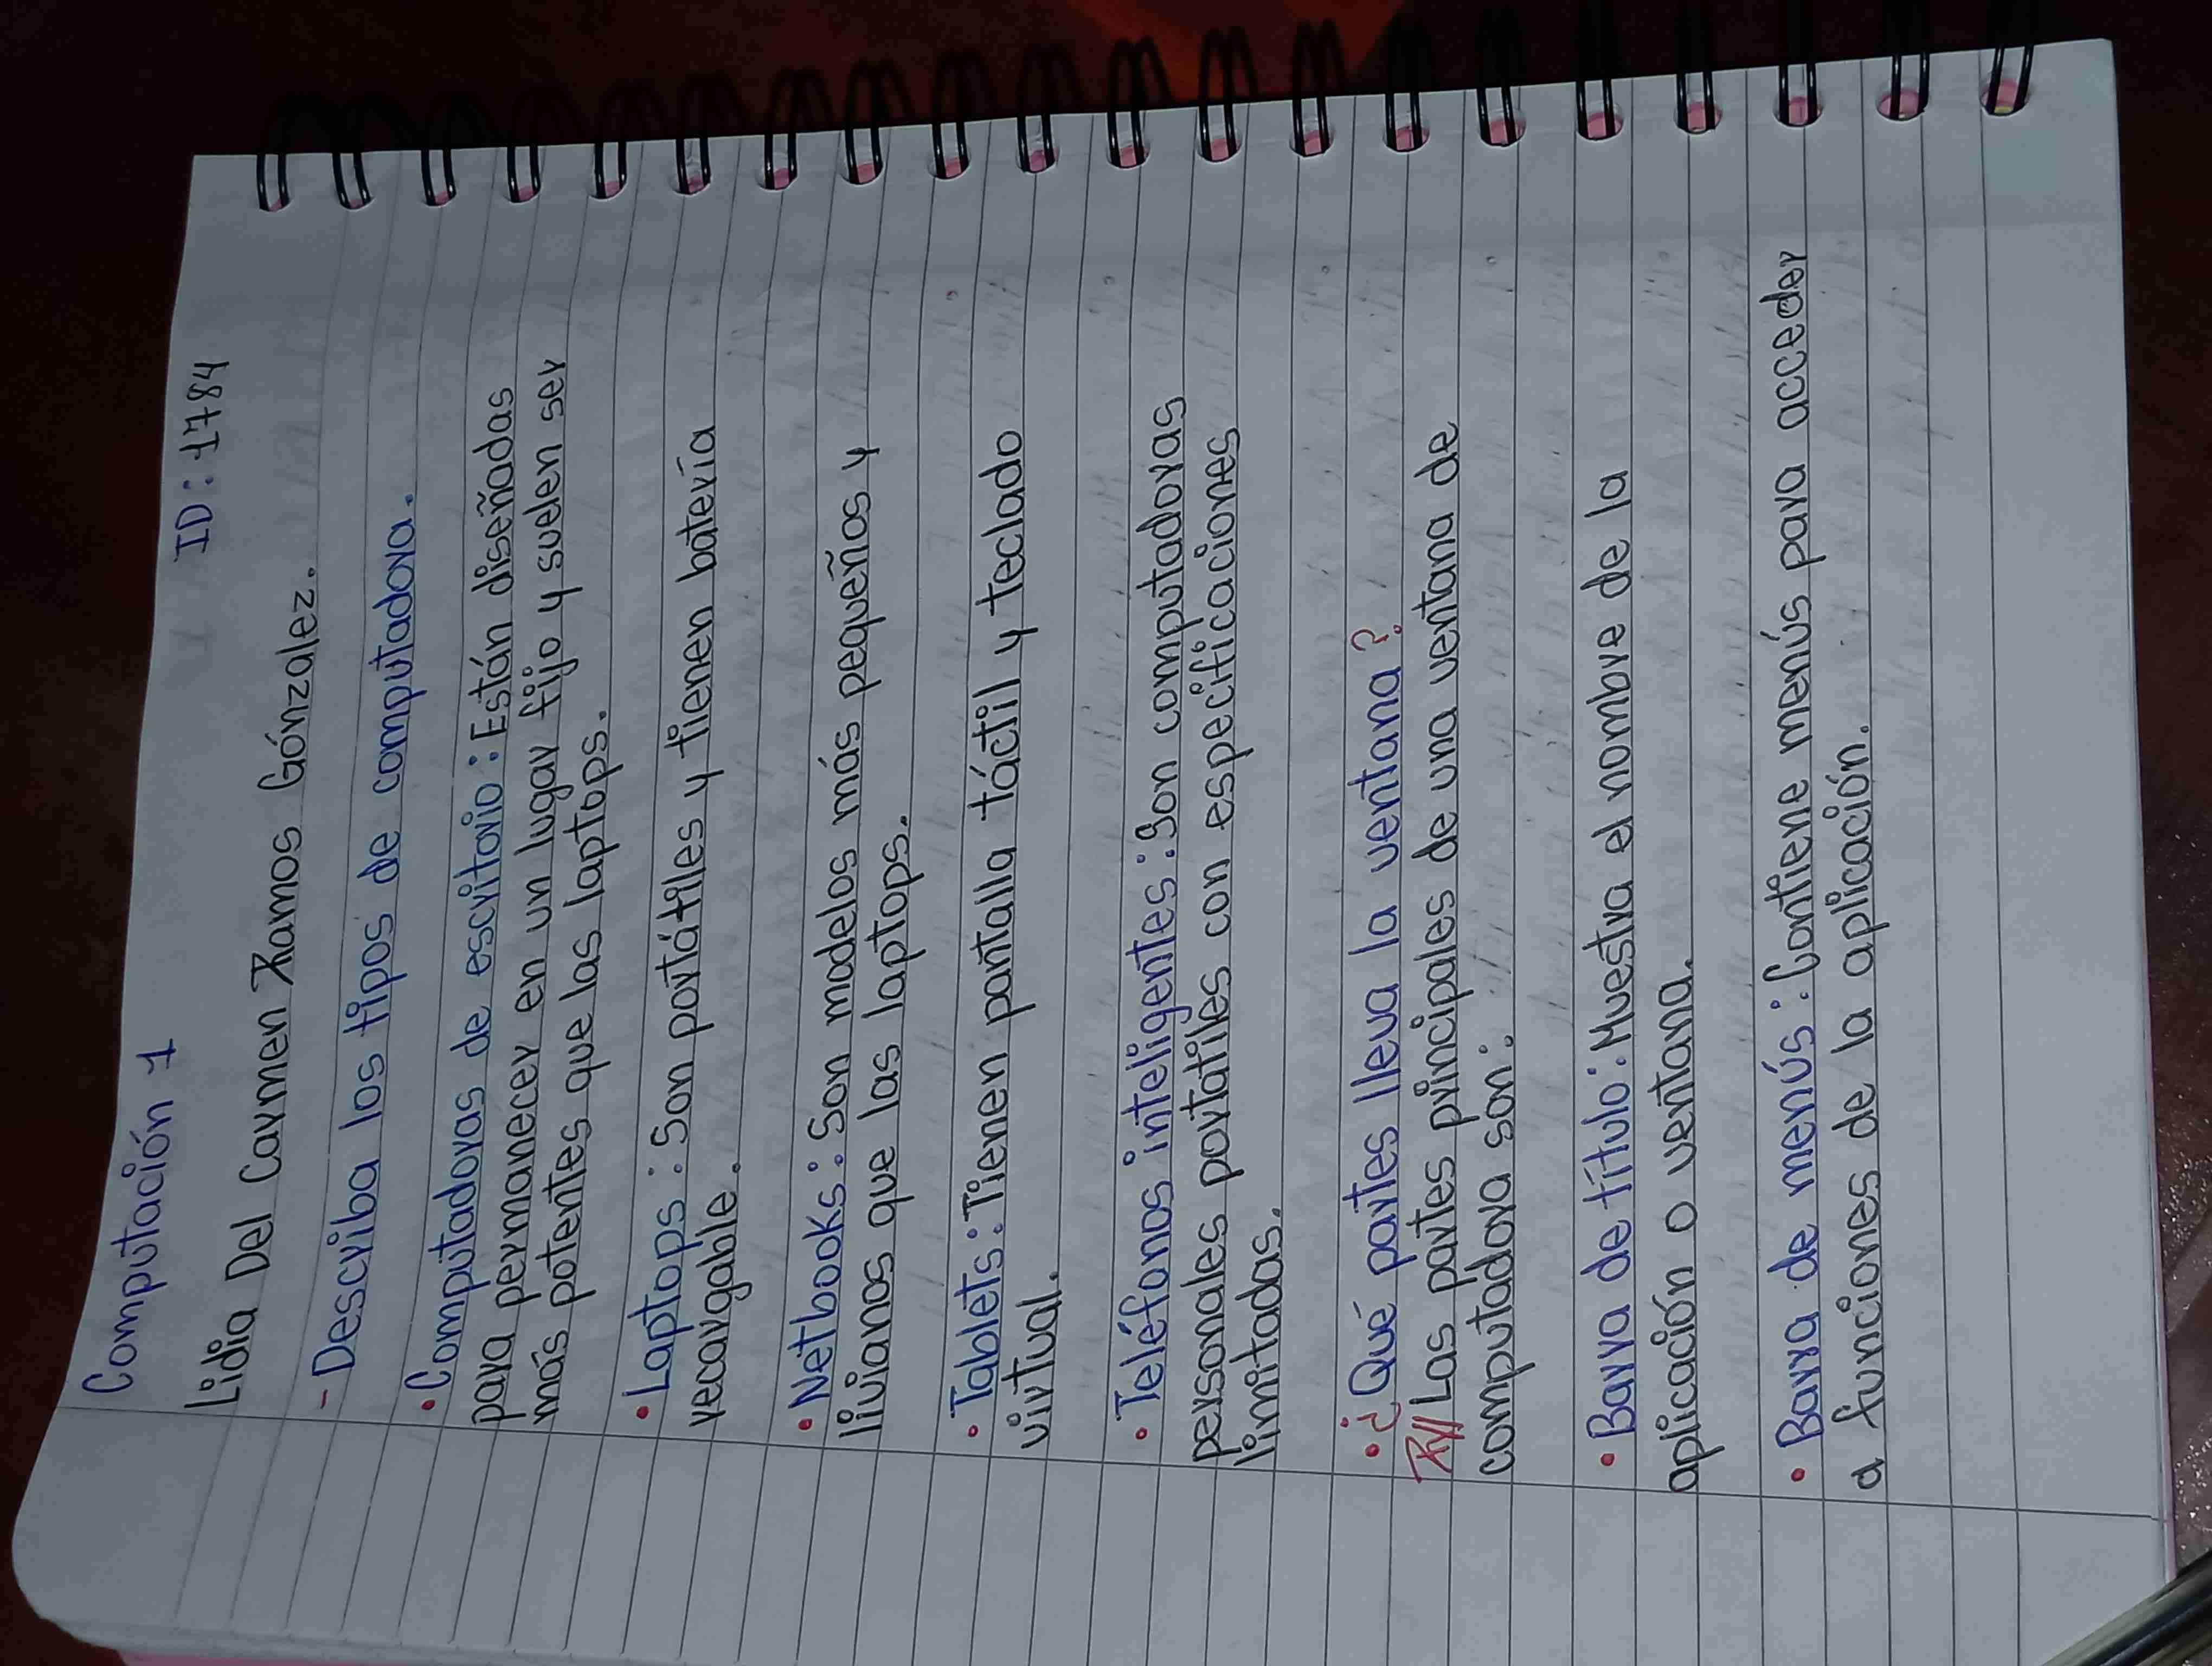 Computación 1 ID: 1784
Lidia Del Carmen Ramos Gónzalez.
- Describa los tipos de computadora.
• Computadoras de escritorio: Están diseñadas
para permanecer en un lugar fijo y suelen ser
más potentes que las laptops.
• Laptops: Son portátiles y tienen batería
recargable.
• Netbooks: Son modelos más pequeños y
livianos que las laptops.
• Tablets: Tienen pantalla táctil y teclado
virtual.
• Teléfonos inteligentes: Son computadoras
personales portatiles con especificaciones
limitadas.
• ¿Qué partes lleva la ventana?
R// Las partes principales de una ventana de
computadora son:
• Barra de título: Muestra el nombre de la
aplicación o ventana.
• Barra de menús: Contiene menús para acceder
a funciones de la aplicación.